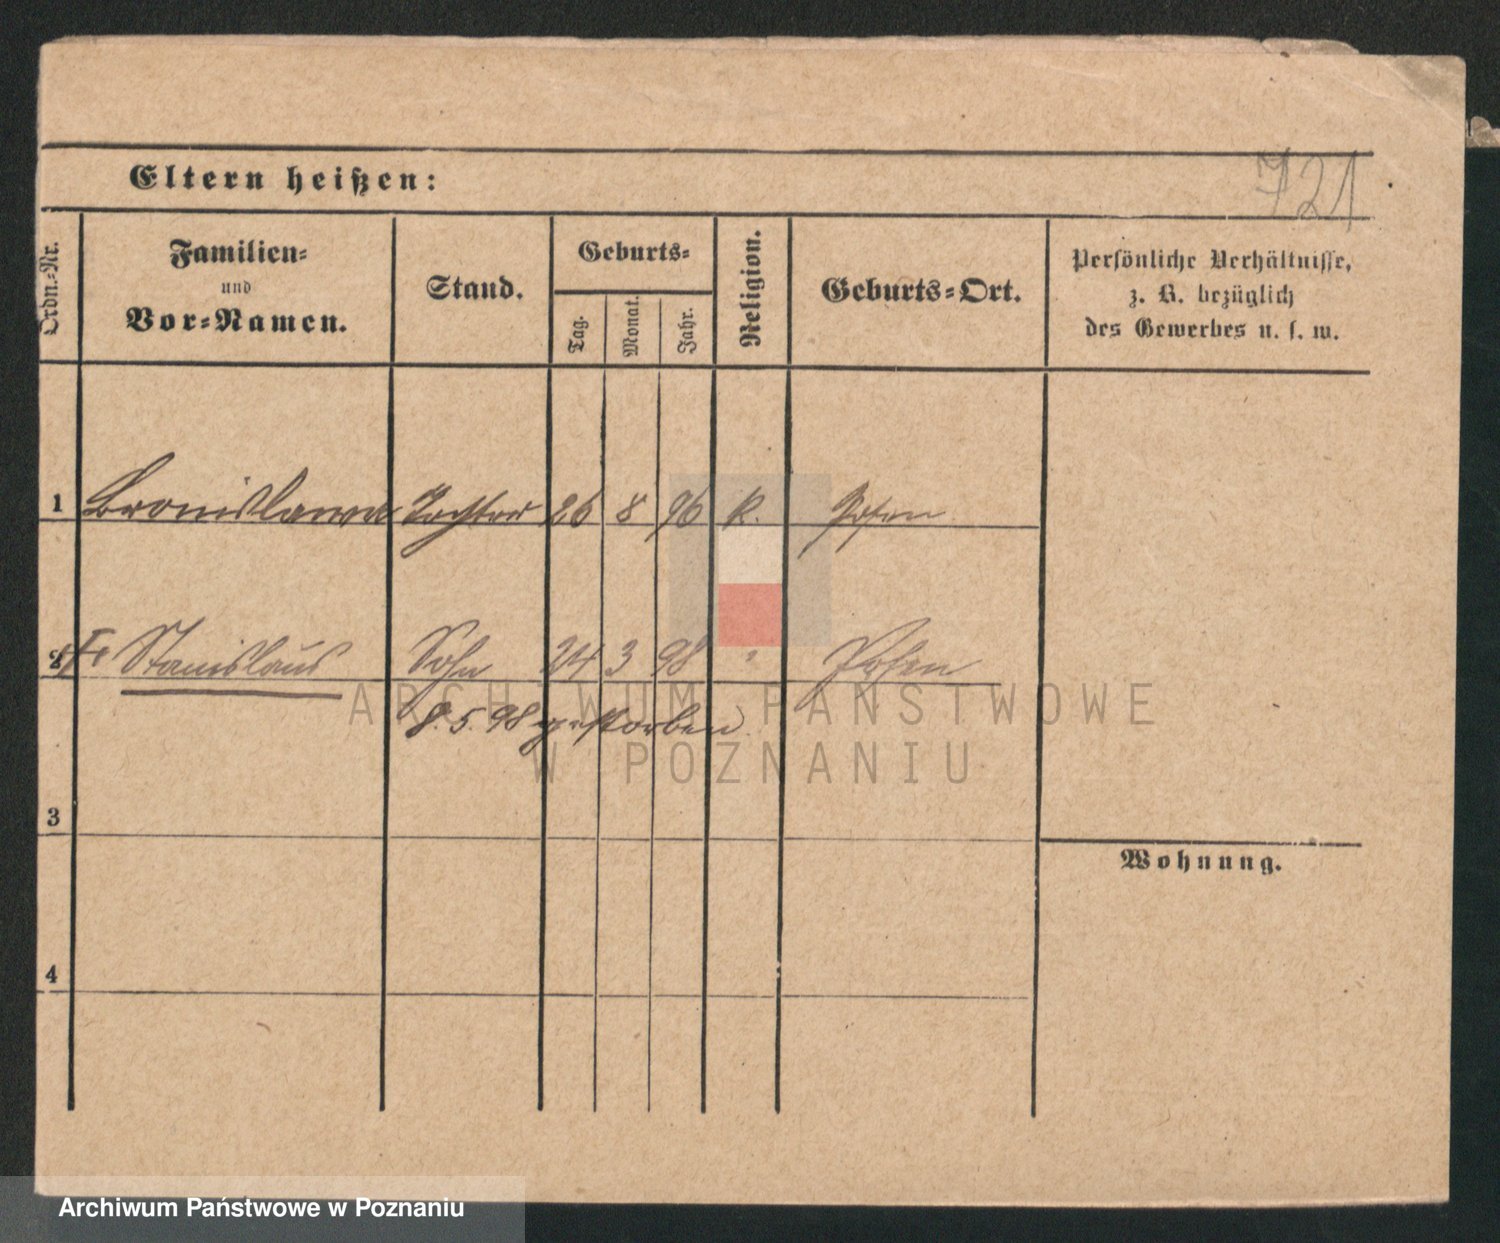 721
Eltern heißen:
Ordn.-Nr.
Familien-
und
Vor-Namen.
Stand.
Geburts-
Tag.
Monat.
Jahr.
Religion.
Geburts-Ort.
Persönliche Verhältnisse,
z. B. bezüglich
des Gewerbes u. s. w.
1 Bronislawa Tochter 26 8 96 k. Posen
2 Stanislaus Sohn 24 3 98 " Posen
8.5.98 gestorben.
3
Wohnung.
4
ARCHIWUM PAŃSTWOWE
W POZNANIU
Archiwum Państwowe w Poznaniu